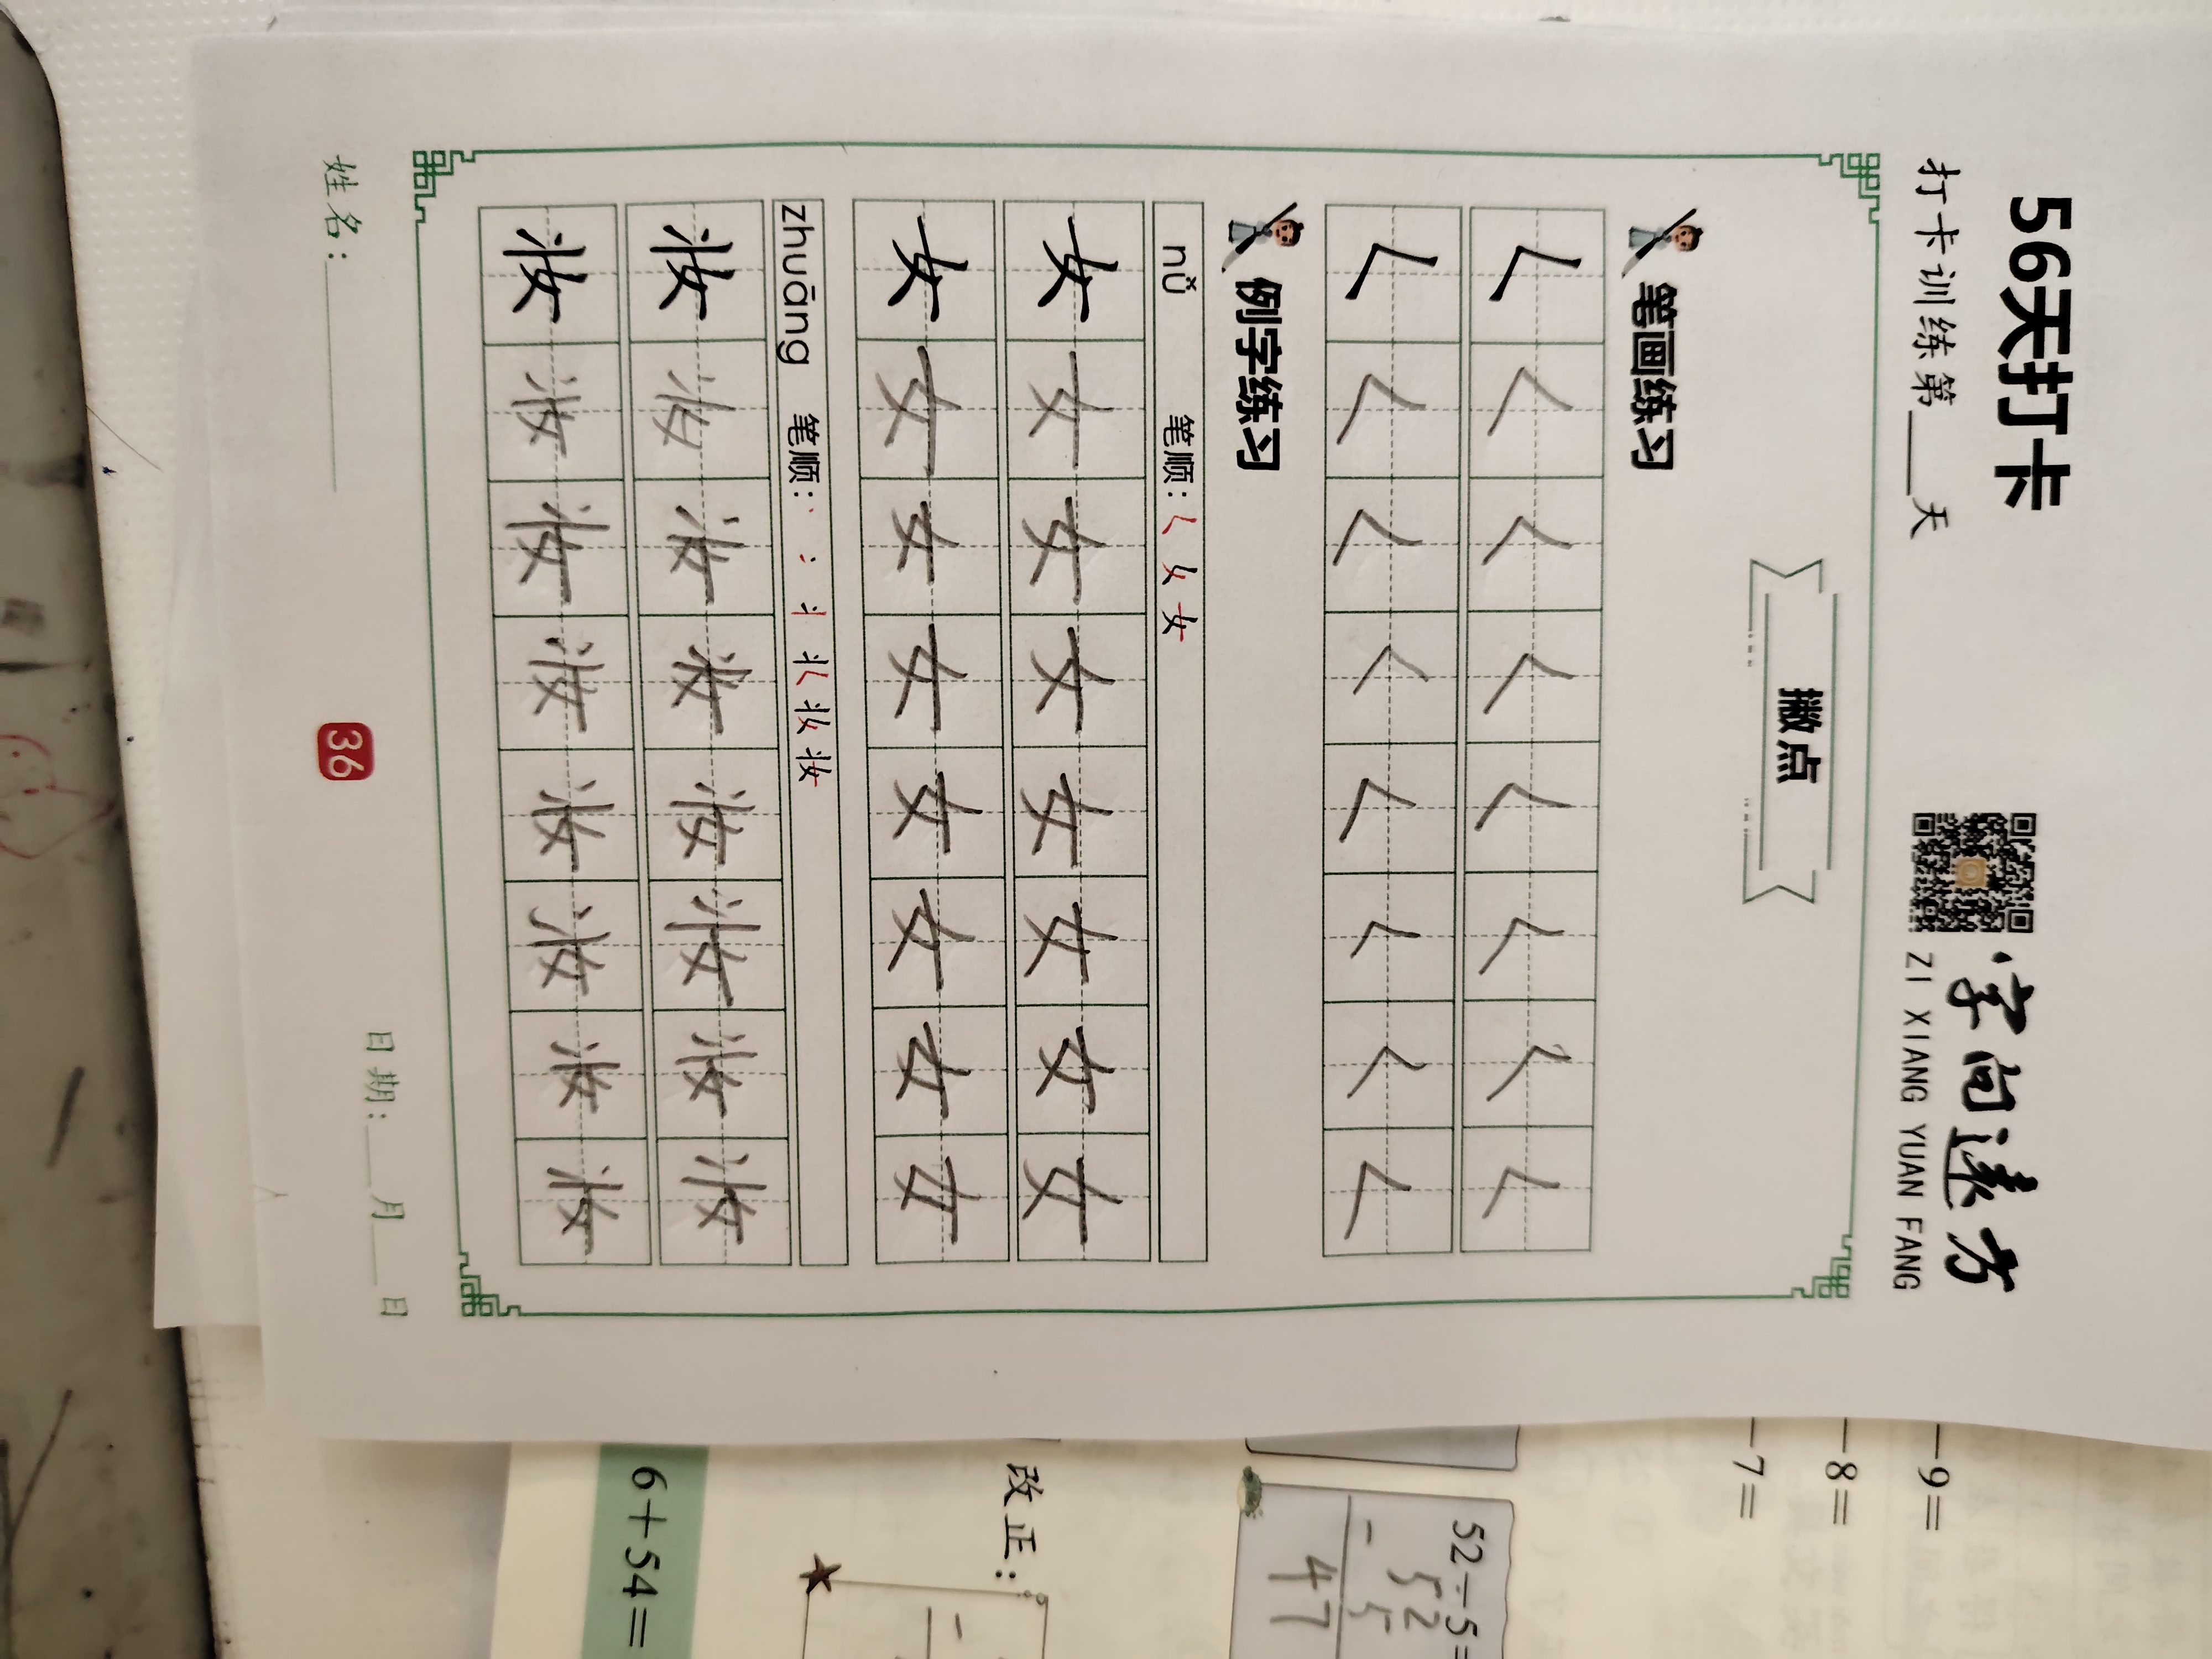 56天打卡
打卡训练第___天
字向远方
ZI XIANG YUAN FANG
撇点
笔画练习
𡿨 𡿨 𡿨 𡿨 𡿨 𡿨 𡿨 𡿨
𡿨 𡿨 𡿨 𡿨 𡿨 𡿨 𡿨 𡿨
例字练习
nǚ 笔顺: 𡿨 女 女
女 女 女 女 女 女 女 女
女 女 女 女 女 女 女 女
zhuāng 笔顺: 丶 冫 丬 妆 妆
妆 妆 妆 妆 妆 妆 妆 妆
妆 妆 妆 妆 妆 妆 妆 妆
姓名:
36
日期:___月___日
-9=
-8=
-7=
52-5=
52
- 5
47
改正:
6+54=